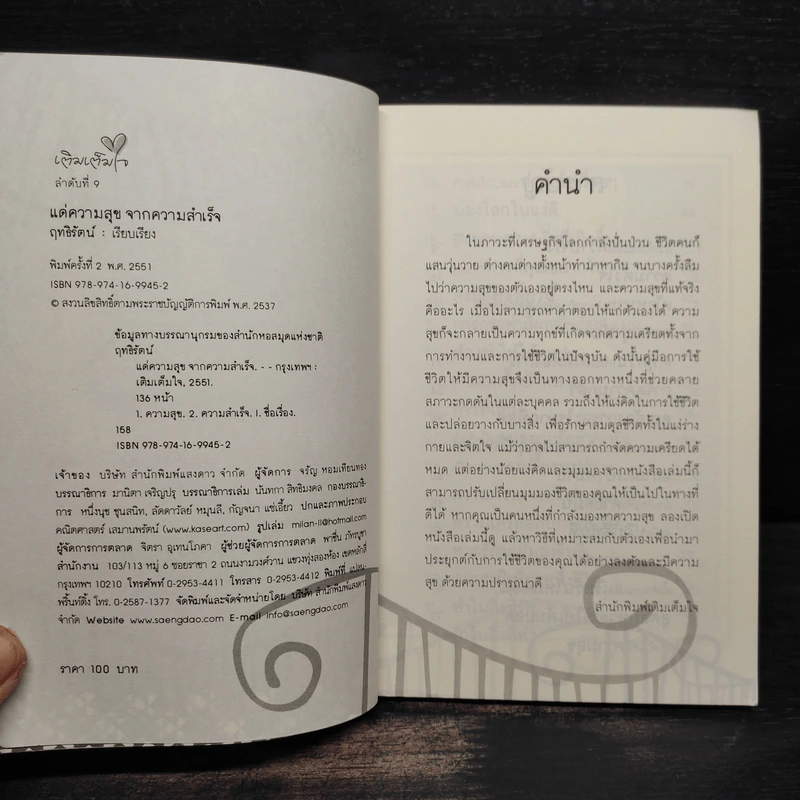 เติมเต็มใจ
ลำดับที่ 9
แด่ความสุข จากความสำเร็จ
ฤทธิรัตน์ : เรียบเรียง
พิมพ์ครั้งที่ 2 พ.ศ. 2551
ISBN 978-974-16-9945-2
© สงวนลิขสิทธิ์ตามพระราชบัญญัติการพิมพ์ พ.ศ. 2537
ข้อมูลทางบรรณานุกรมของสำนักหอสมุดแห่งชาติ
ฤทธิรัตน์
แด่ความสุข จากความสำเร็จ. - - กรุงเทพฯ :
เติมเต็มใจ, 2551.
136 หน้า
1. ความสุข. 2. ความสำเร็จ. I. ชื่อเรื่อง.
158
ISBN 978-974-16-9945-2
เจ้าของ บริษัท สำนักพิมพ์แสงดาว จำกัด ผู้จัดการ จรัญ หอมเทียนทอง
บรรณาธิการ มานิตา เจริญปรุ บรรณาธิการเล่ม นันทกา สิทธิมงคล กองบรรณาธิ-
การ หนึ่งนุช ชุนสนิท, ลัดดาวัลย์ หมุนลี, กัญจนา แซ่เอี้ยว ปกและภาพประกอบ
คณิตศาสตร์ เสมานพรัตน์ (www.kaseart.com) รูปเล่ม milan-ll@hotmail.com
ผู้จัดการการตลาด จิตรา อุเทนโภคา ผู้ช่วยผู้จัดการการตลาด พาชื่น ภัทรบูชา
สำนักงาน 103/113 หมู่ 6 ซอยราชา 2 ถนนงามวงศ์วาน แขวงทุ่งสองห้อง เขตหลักสี่
กรุงเทพฯ 10210 โทรศัพท์ 0-2953-4411 โทรสาร 0-2953-4412 พิมพ์ที่
พริ้นท์ติ้ง โทร. 0-2587-1377 จัดพิมพ์และจัดจำหน่ายโดย บริษัท สำนักพิมพ์แสงดาว
จำกัด Website www.saengdao.com E-mail info@saengdao.com
ราคา 100 บาท
คำนำ
ในภาวะที่เศรษฐกิจโลกกำลังปั่นป่วน ชีวิตคนก็
แสนวุ่นวาย ต่างคนต่างตั้งหน้าทำมาหากิน จนบางครั้งลืม
ไปว่าความสุขของตัวเองอยู่ตรงไหน และความสุขที่แท้จริง
คืออะไร เมื่อไม่สามารถหาคำตอบให้แก่ตัวเองได้ ความ
สุขก็จะกลายเป็นความทุกข์ที่เกิดจากความเครียดทั้งจาก
การทำงานและการใช้ชีวิตในปัจจุบัน ดังนั้นคู่มือการใช้
ชีวิตให้มีความสุขจึงเป็นทางออกทางหนึ่งที่ช่วยคลาย
สภาวะกดดันในแต่ละบุคคล รวมถึงให้แง่คิดในการใช้ชีวิต
และปล่อยวางกับบางสิ่ง เพื่อรักษาสมดุลชีวิตทั้งในแง่ร่าง
กายและจิตใจ แม้ว่าอาจไม่สามารถกำจัดความเครียดได้
หมด แต่อย่างน้อยแง่คิดและมุมมองจากหนังสือเล่มนี้ก็
สามารถปรับเปลี่ยนมุมมองชีวิตของคุณให้เป็นไปในทางที่
ดีได้ หากคุณเป็นคนหนึ่งที่กำลังมองหาความสุข ลองเปิด
หนังสือเล่มนี้ดู แล้วหาวิธีที่เหมาะสมกับตัวเองเพื่อนำมา
ประยุกต์กับการใช้ชีวิตของคุณได้อย่างลงตัวและมีความ
สุข ด้วยความปรารถนาดี
สำนักพิมพ์เติมเต็มใจ